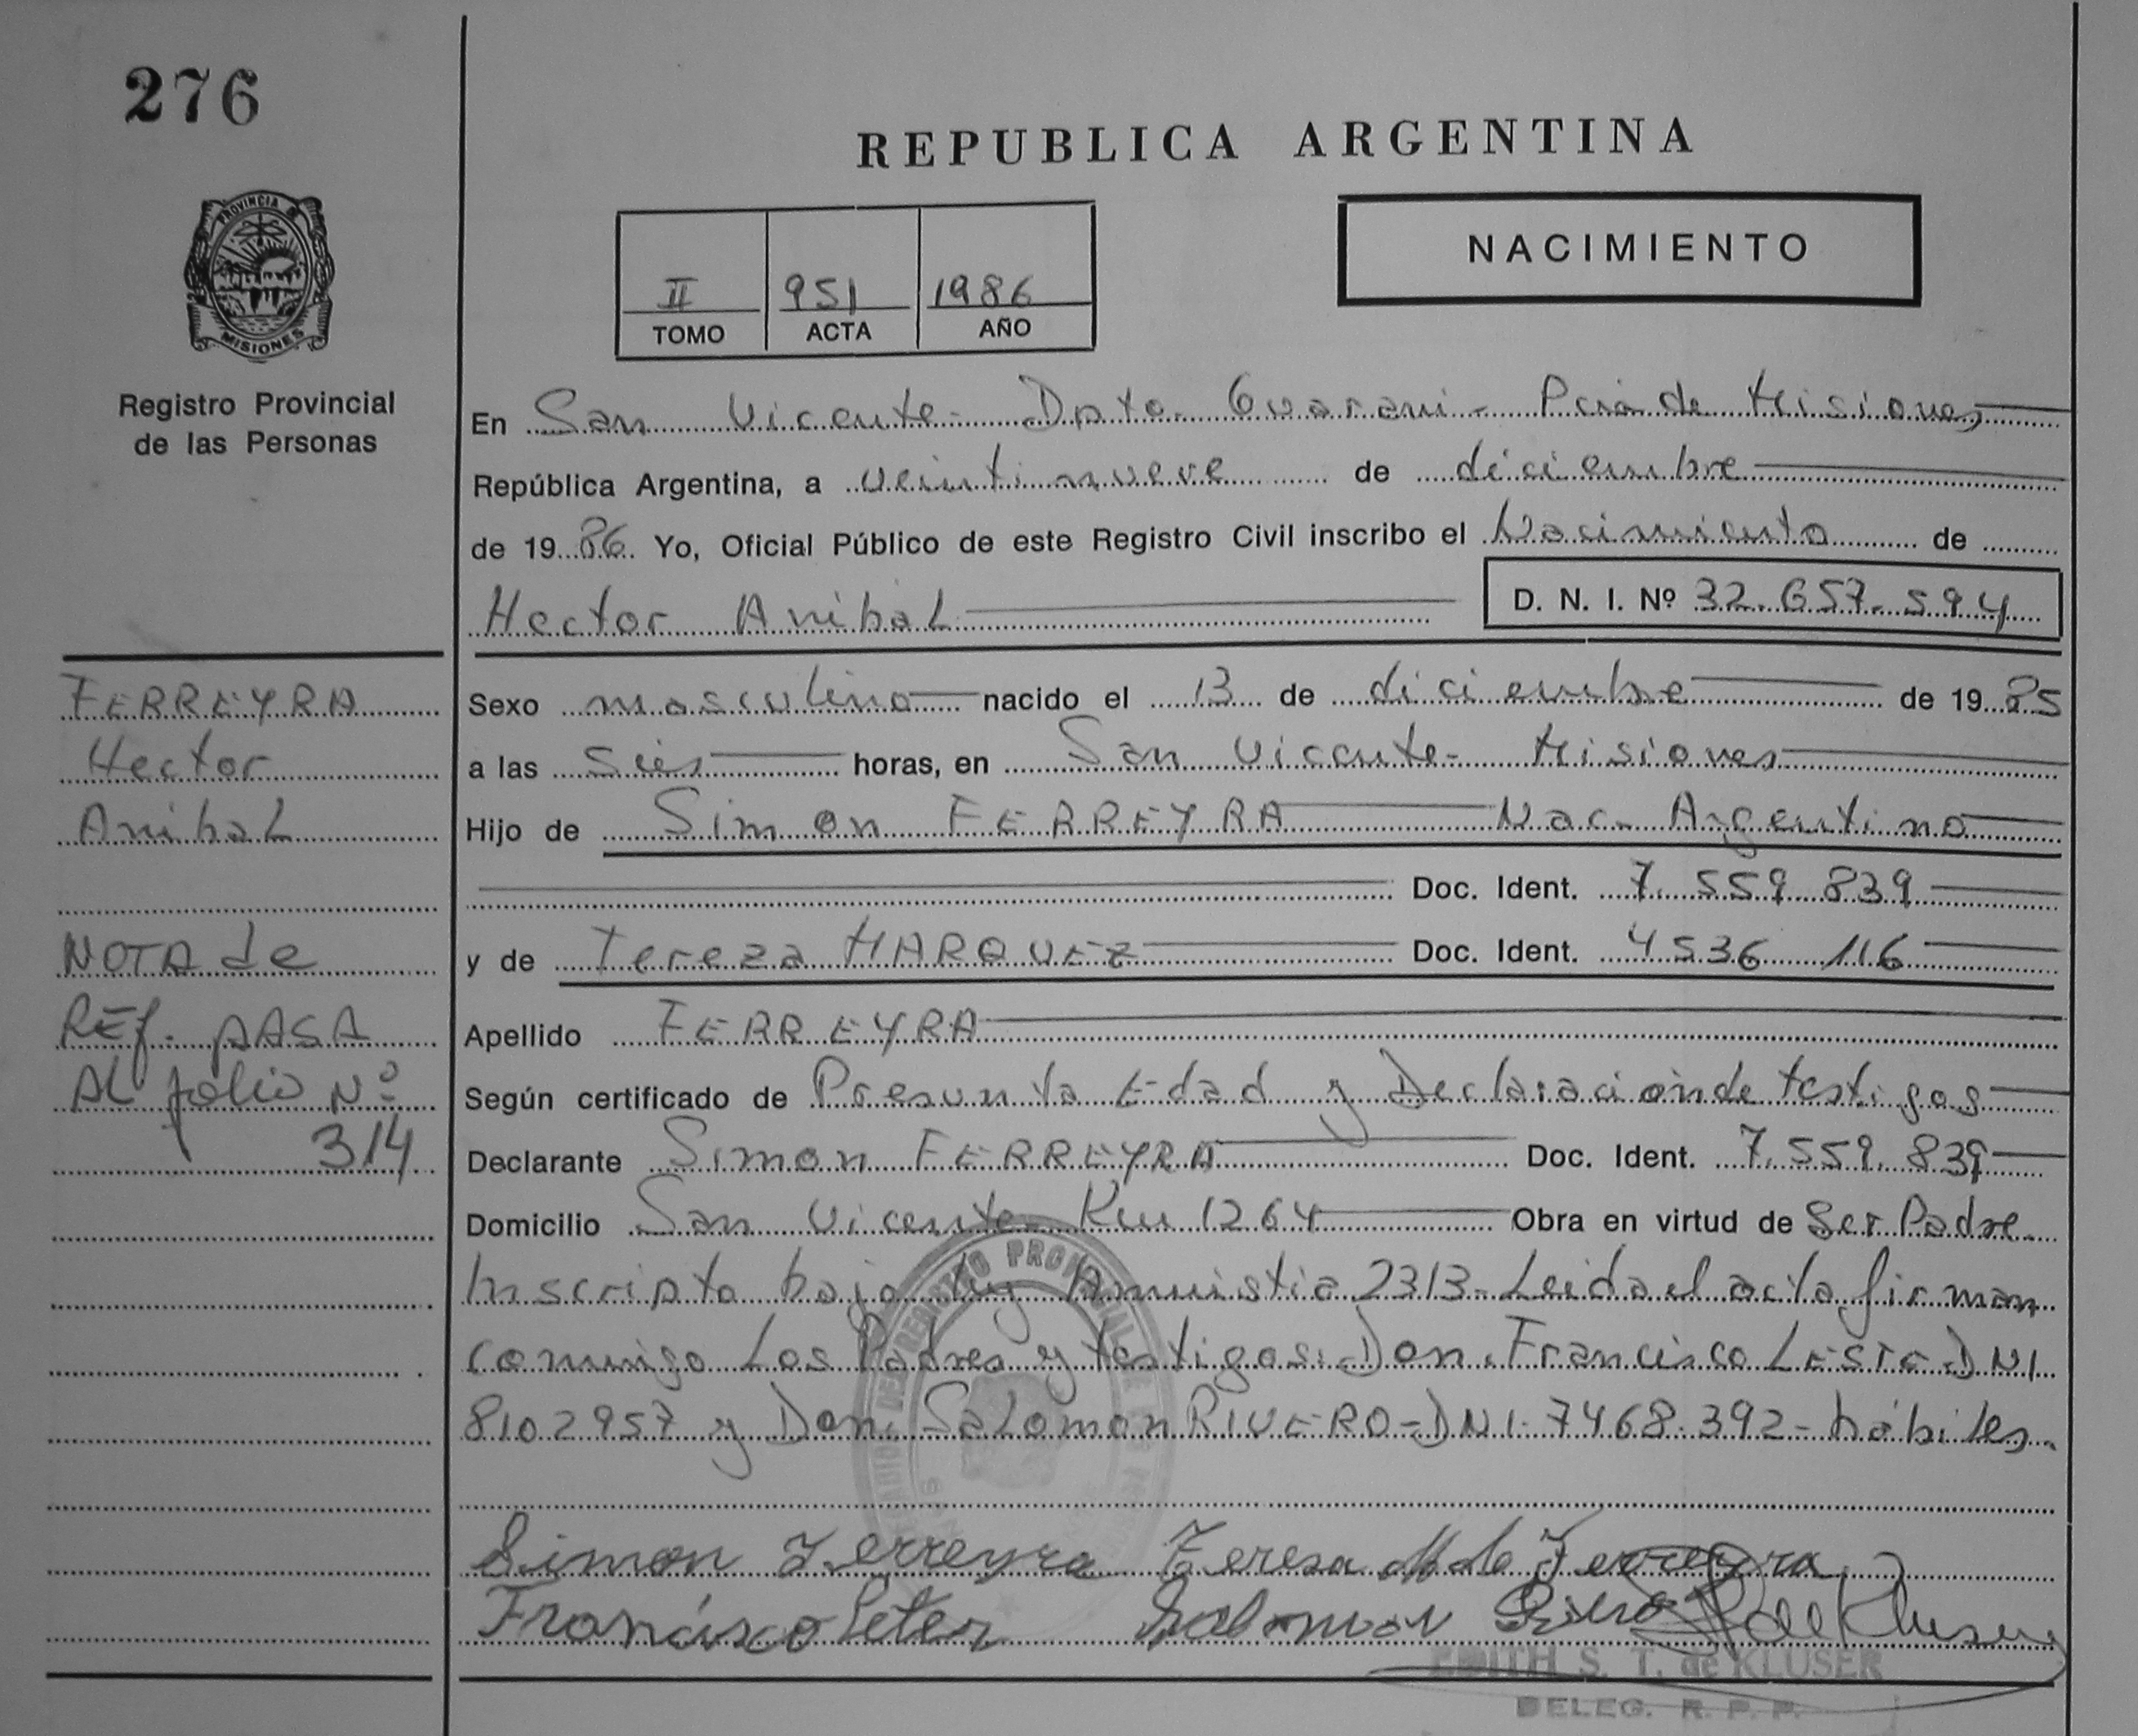 276
REPUBLICA ARGENTINA
PROVINCIA DE
MISIONES
Registro Provincial
de las Personas
NACIMIENTO
II 951 1986
TOMO ACTA AÑO
En San Vicente - Dpto. Guarani - Pcia de Misiones
República Argentina, a veintinueve de diciembre
de 1986 Yo, Oficial Público de este Registro Civil inscribo el Nacimiento de
Hector Anibal D. N. I. Nº 32.657.594
FERREYRA
Hector
Anibal
NOTA de
REf. PASA
AL folio Nº
314
Sexo masculino nacido el 13 de diciembre de 1985
a las sies horas, en San Vicente - Misiones
Hijo de Simon FERREYRA Nac. Argentino
Doc. Ident. 7.559.839
y de Tereza MARQUEZ Doc. Ident. 4536 116
Apellido FERREYRA
Según certificado de Presunta Edad y Declaración de testigos
Declarante Simon FERREYRA Doc. Ident. 7.559.839
Domicilio San Vicente - Km 1264 Obra en virtud de Ser Padre.
Inscripto bajo Ley Amnistia 2313 - Leida el acta firman
conmigo Los Padres y testigos: Don Francisco DNI
8102957 y Don Salomon RIVERO - DNI. 7468.392 - hábiles.
Simon Ferreyra Teresa M de Ferreyra
Francisco Salomon
EDITH S. T. de KLUSER
DELEG. R. P. P.